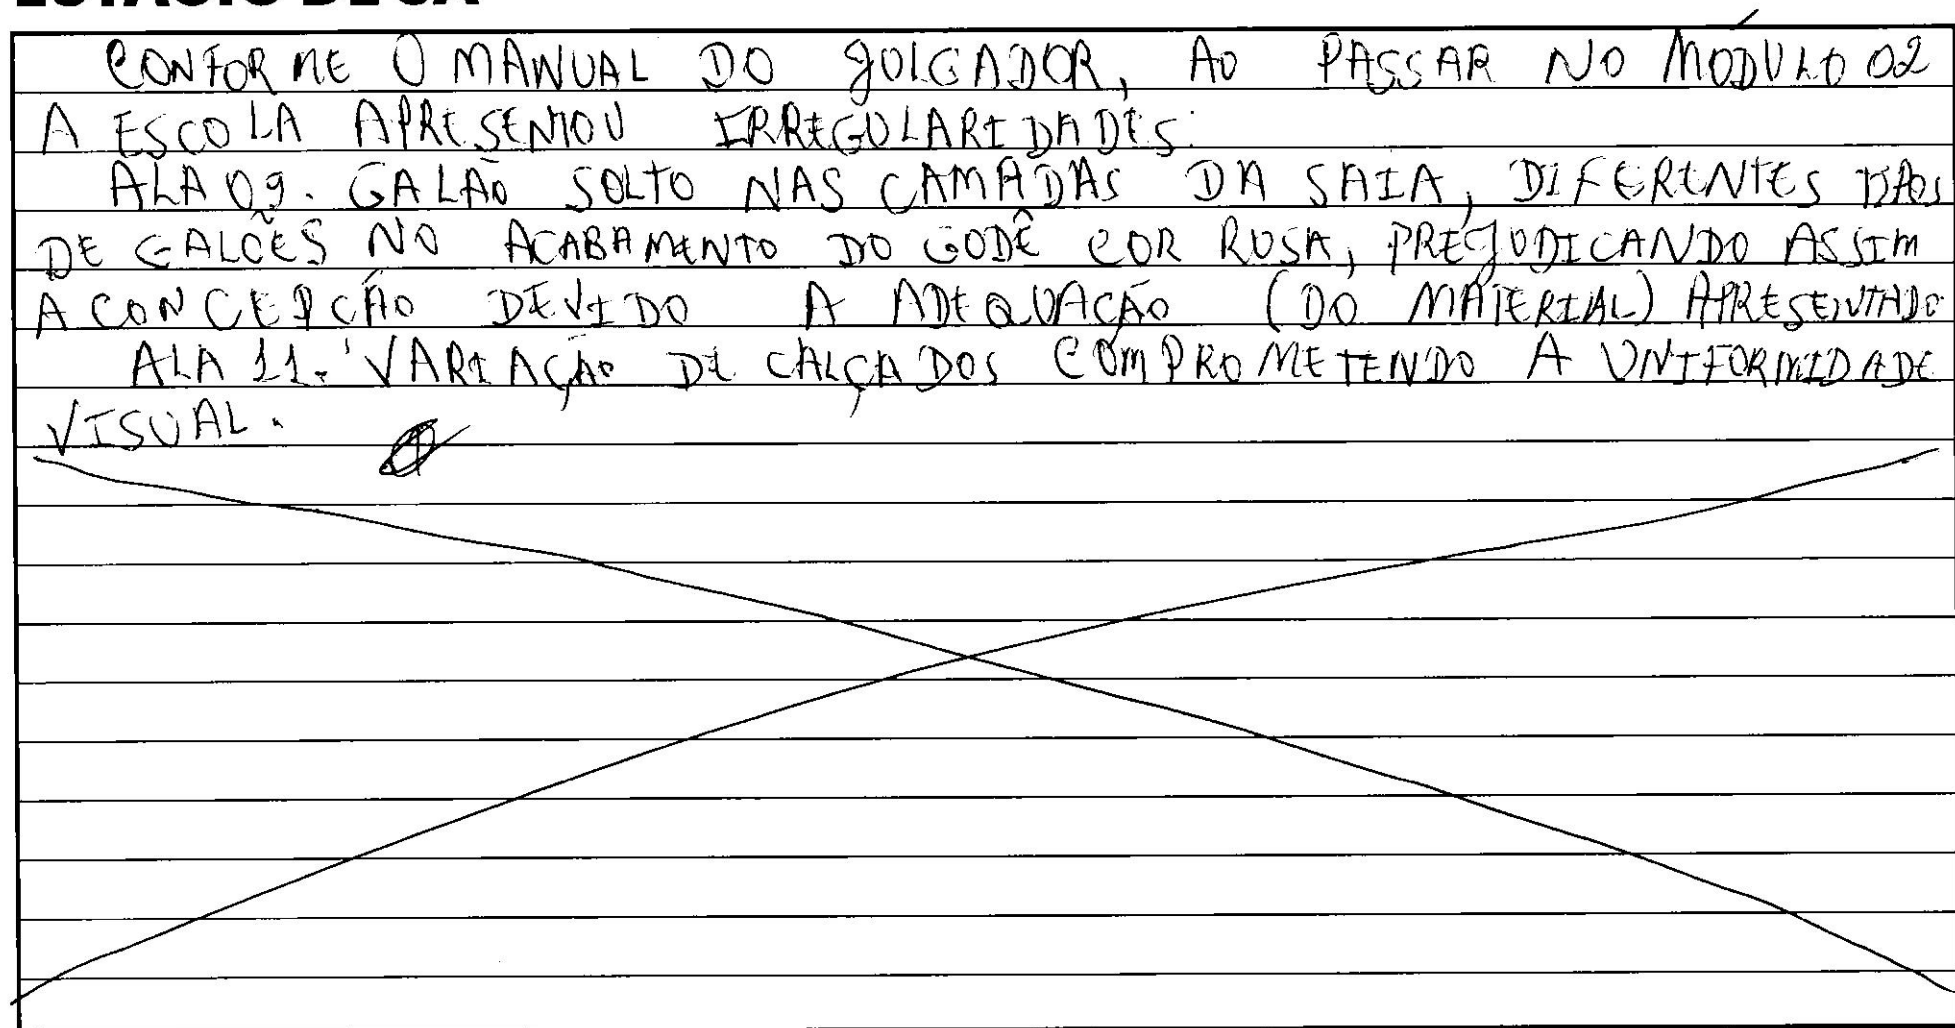 ESTÁCIO DE SÁ
CONFORME O MANUAL DO JULGADOR, AO PASSAR NO MÓDULO 02
A ESCOLA APRESENTOU IRREGULARIDADES.
ALA 09. GALÃO SOLTO NAS CAMADAS DA SAIA, DIFERENTES
DE GALÕES NO ACABAMENTO DO GODÊ COR ROSA, PREJUDICANDO ASSIM
A CONCEPÇÃO DEVIDO A ADEQUAÇÃO (DO MATERIAL) APRESENTADO
ALA 11. VARIAÇÃO DE CALÇADOS COMPROMETENDO A UNIFORMIDADE
VISUAL.